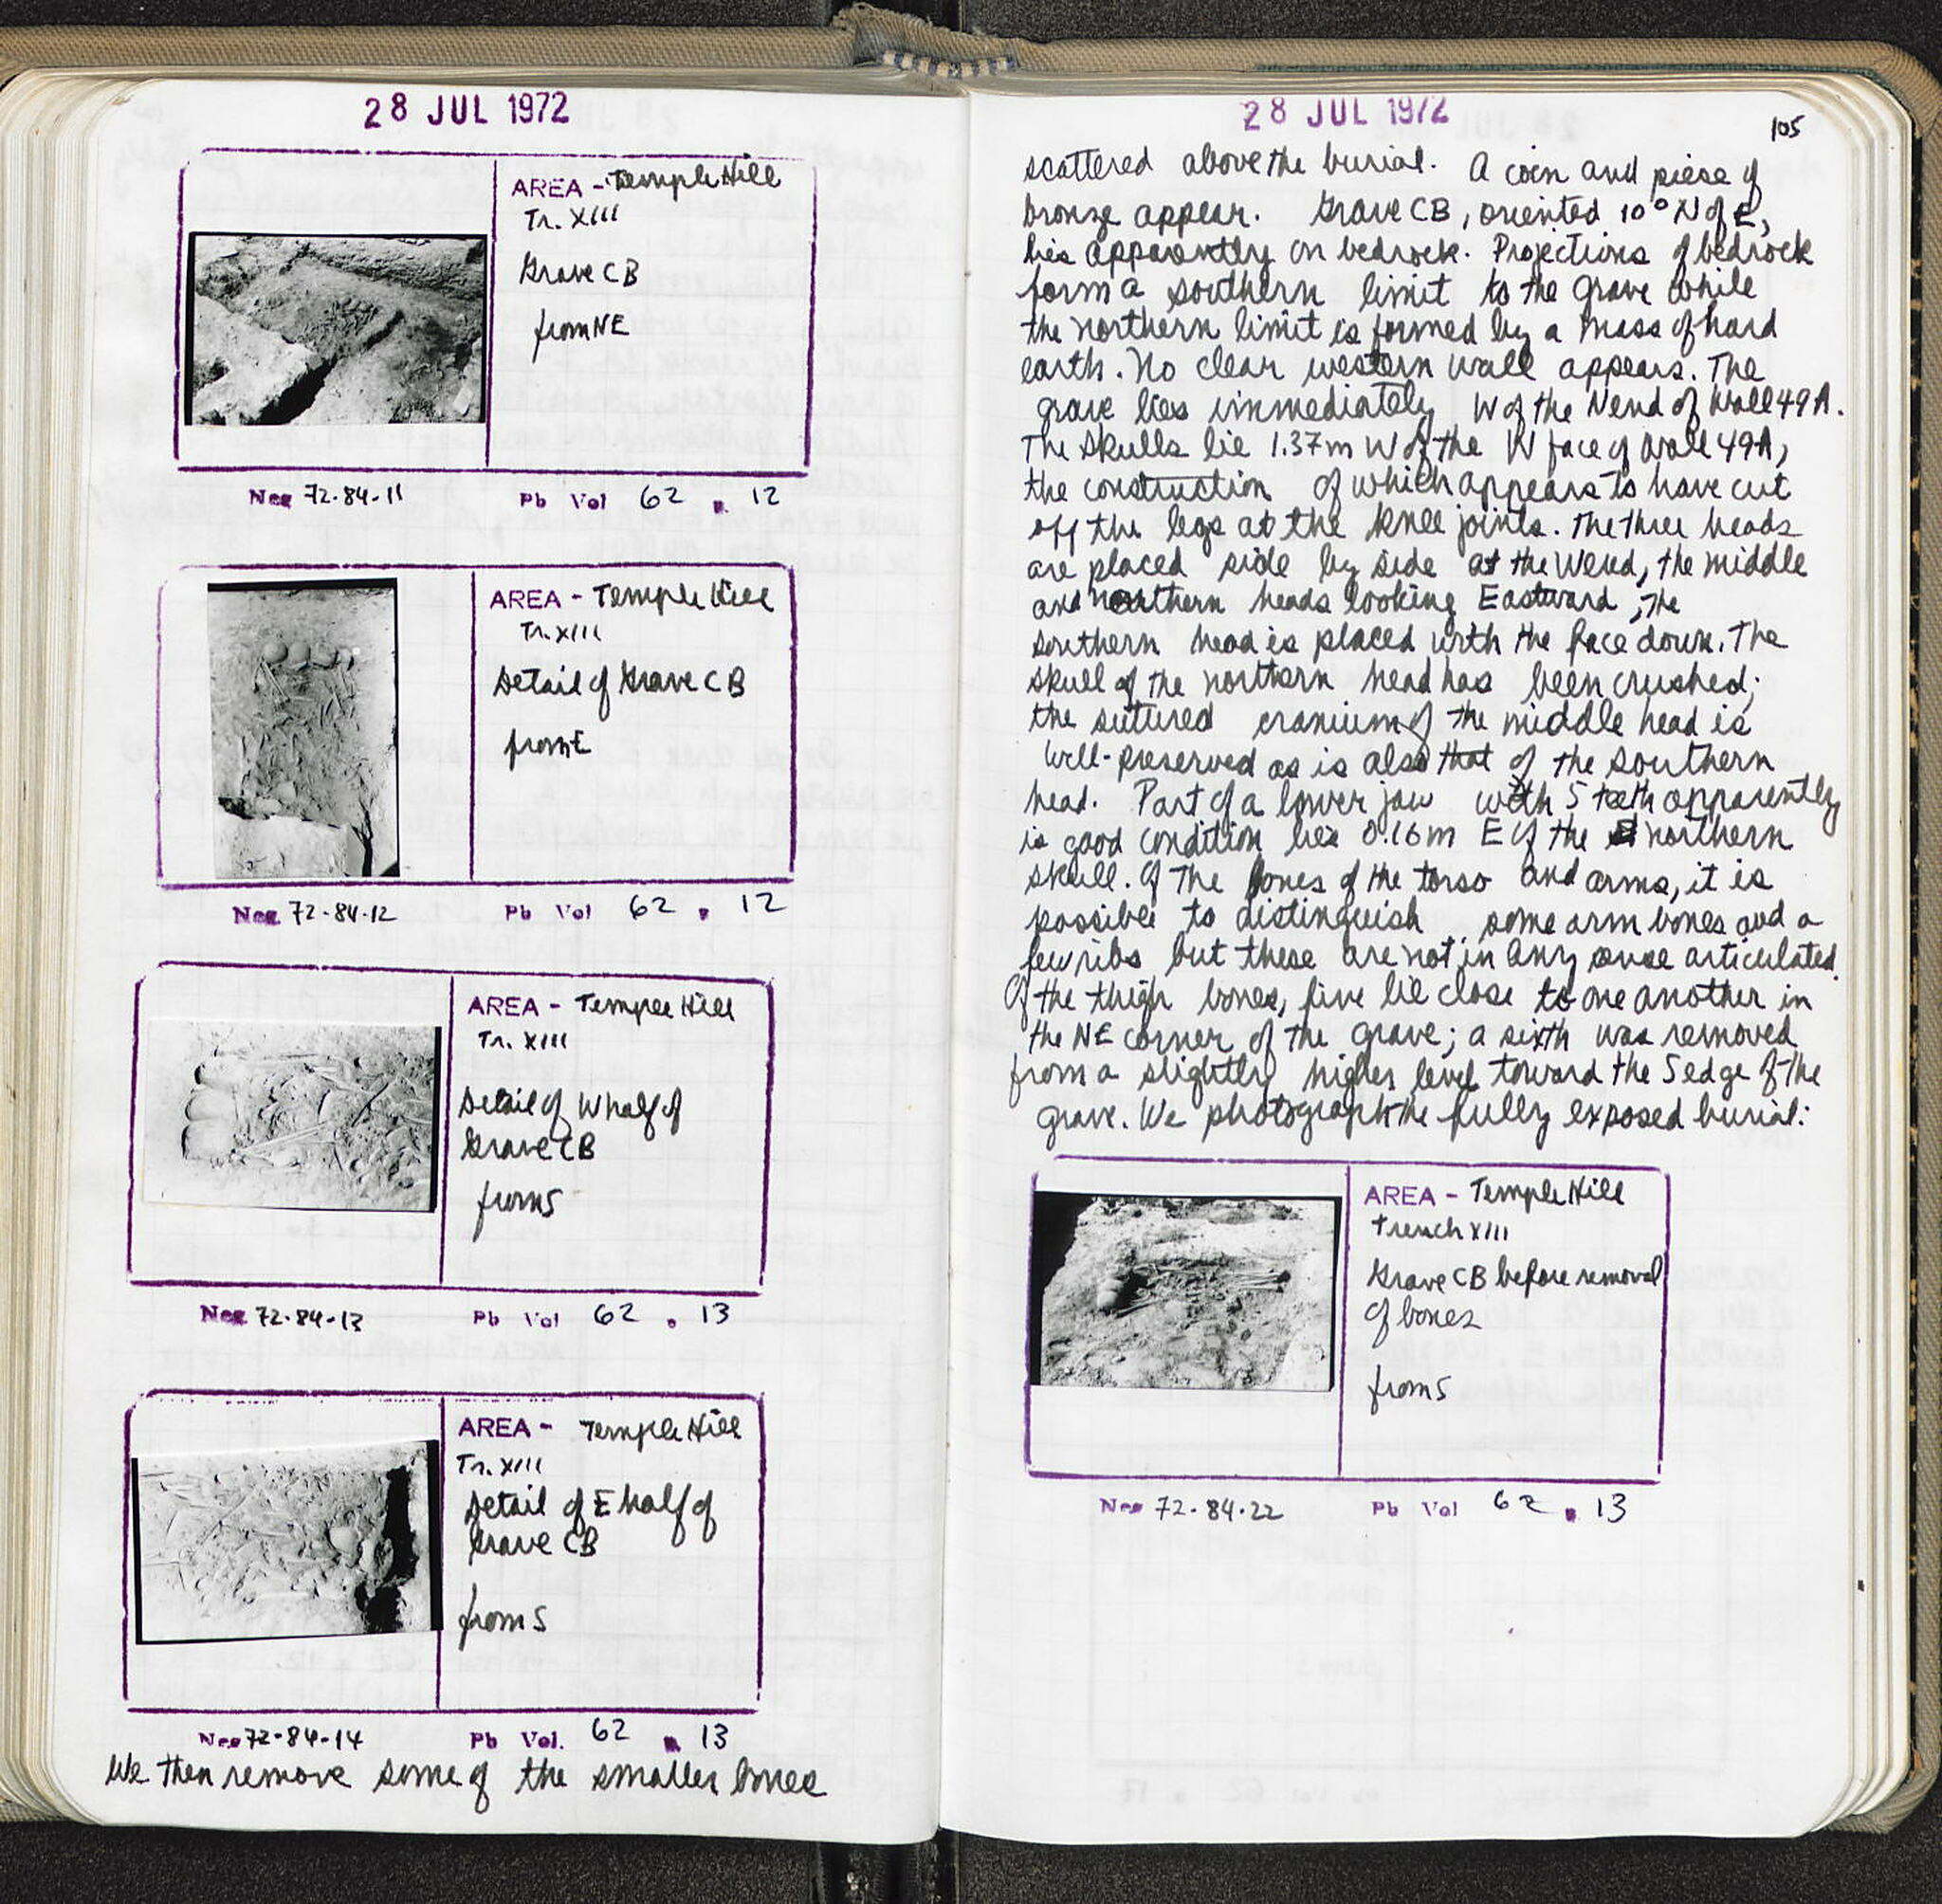 28 JUL 1972
AREA - Temple Hill
Tr. XIII
Grave CB
from NE
Neg 72-84-11 Pb Vol 62 p. 12
AREA - Temple Hill
Tr. XIII
Detail of Grave CB
from E
Neg 72-84-12 Pb Vol 62 p. 12
AREA - Temple Hill
Tr. XIII
Detail of W half of
Grave CB
from S
Neg 72-84-13 Pb Vol 62 p. 13
AREA - Temple Hill
Tr. XIII
Detail of E half of
Grave CB
from S
Neg 72-84-14 Pb Vol. 62 p. 13
We then remove some of the smaller bones
28 JUL 1972
105
scattered above the burial. A coin and piese of
bronze appear. Grave CB, oriented 10° N of E,
lies apparently on bedrock. Projections of bedrock
form a southern limit to the grave while
the northern limit is formed by a mass of hard
earth. No clear western wall appears. The
grave lies immediately W of the N end of Wall 49A.
The skulls lie 1.37m W of the W face of Wall 49A,
the construction of which appears to have cut
off the legs at the knee joints. The three heads
are placed side by side at the W end, the middle
and northern heads looking Eastward; the
southern head is placed with the face down. The
skull of the northern head has been crushed;
the sutured cranium of the middle head is
well-preserved as is also that of the southern
head. Part of a lower jaw with 5 teeth apparently
is good condition lies 0.16m E of the northern
skull. Of the bones of the torso and arms, it is
possible to distinguish some arm bones and a
few ribs but these are not in any sense articulated.
Of the thigh bones, five lie close to one another in
the NE corner of the grave; a sixth was removed
from a slightly higher level toward the S edge of the
grave. We photograph the fully exposed burial:
AREA - Temple Hill
Trench XIII
Grave CB before removal
of bones
from S
Neg 72-84-22 Pb Vol 62 p. 13